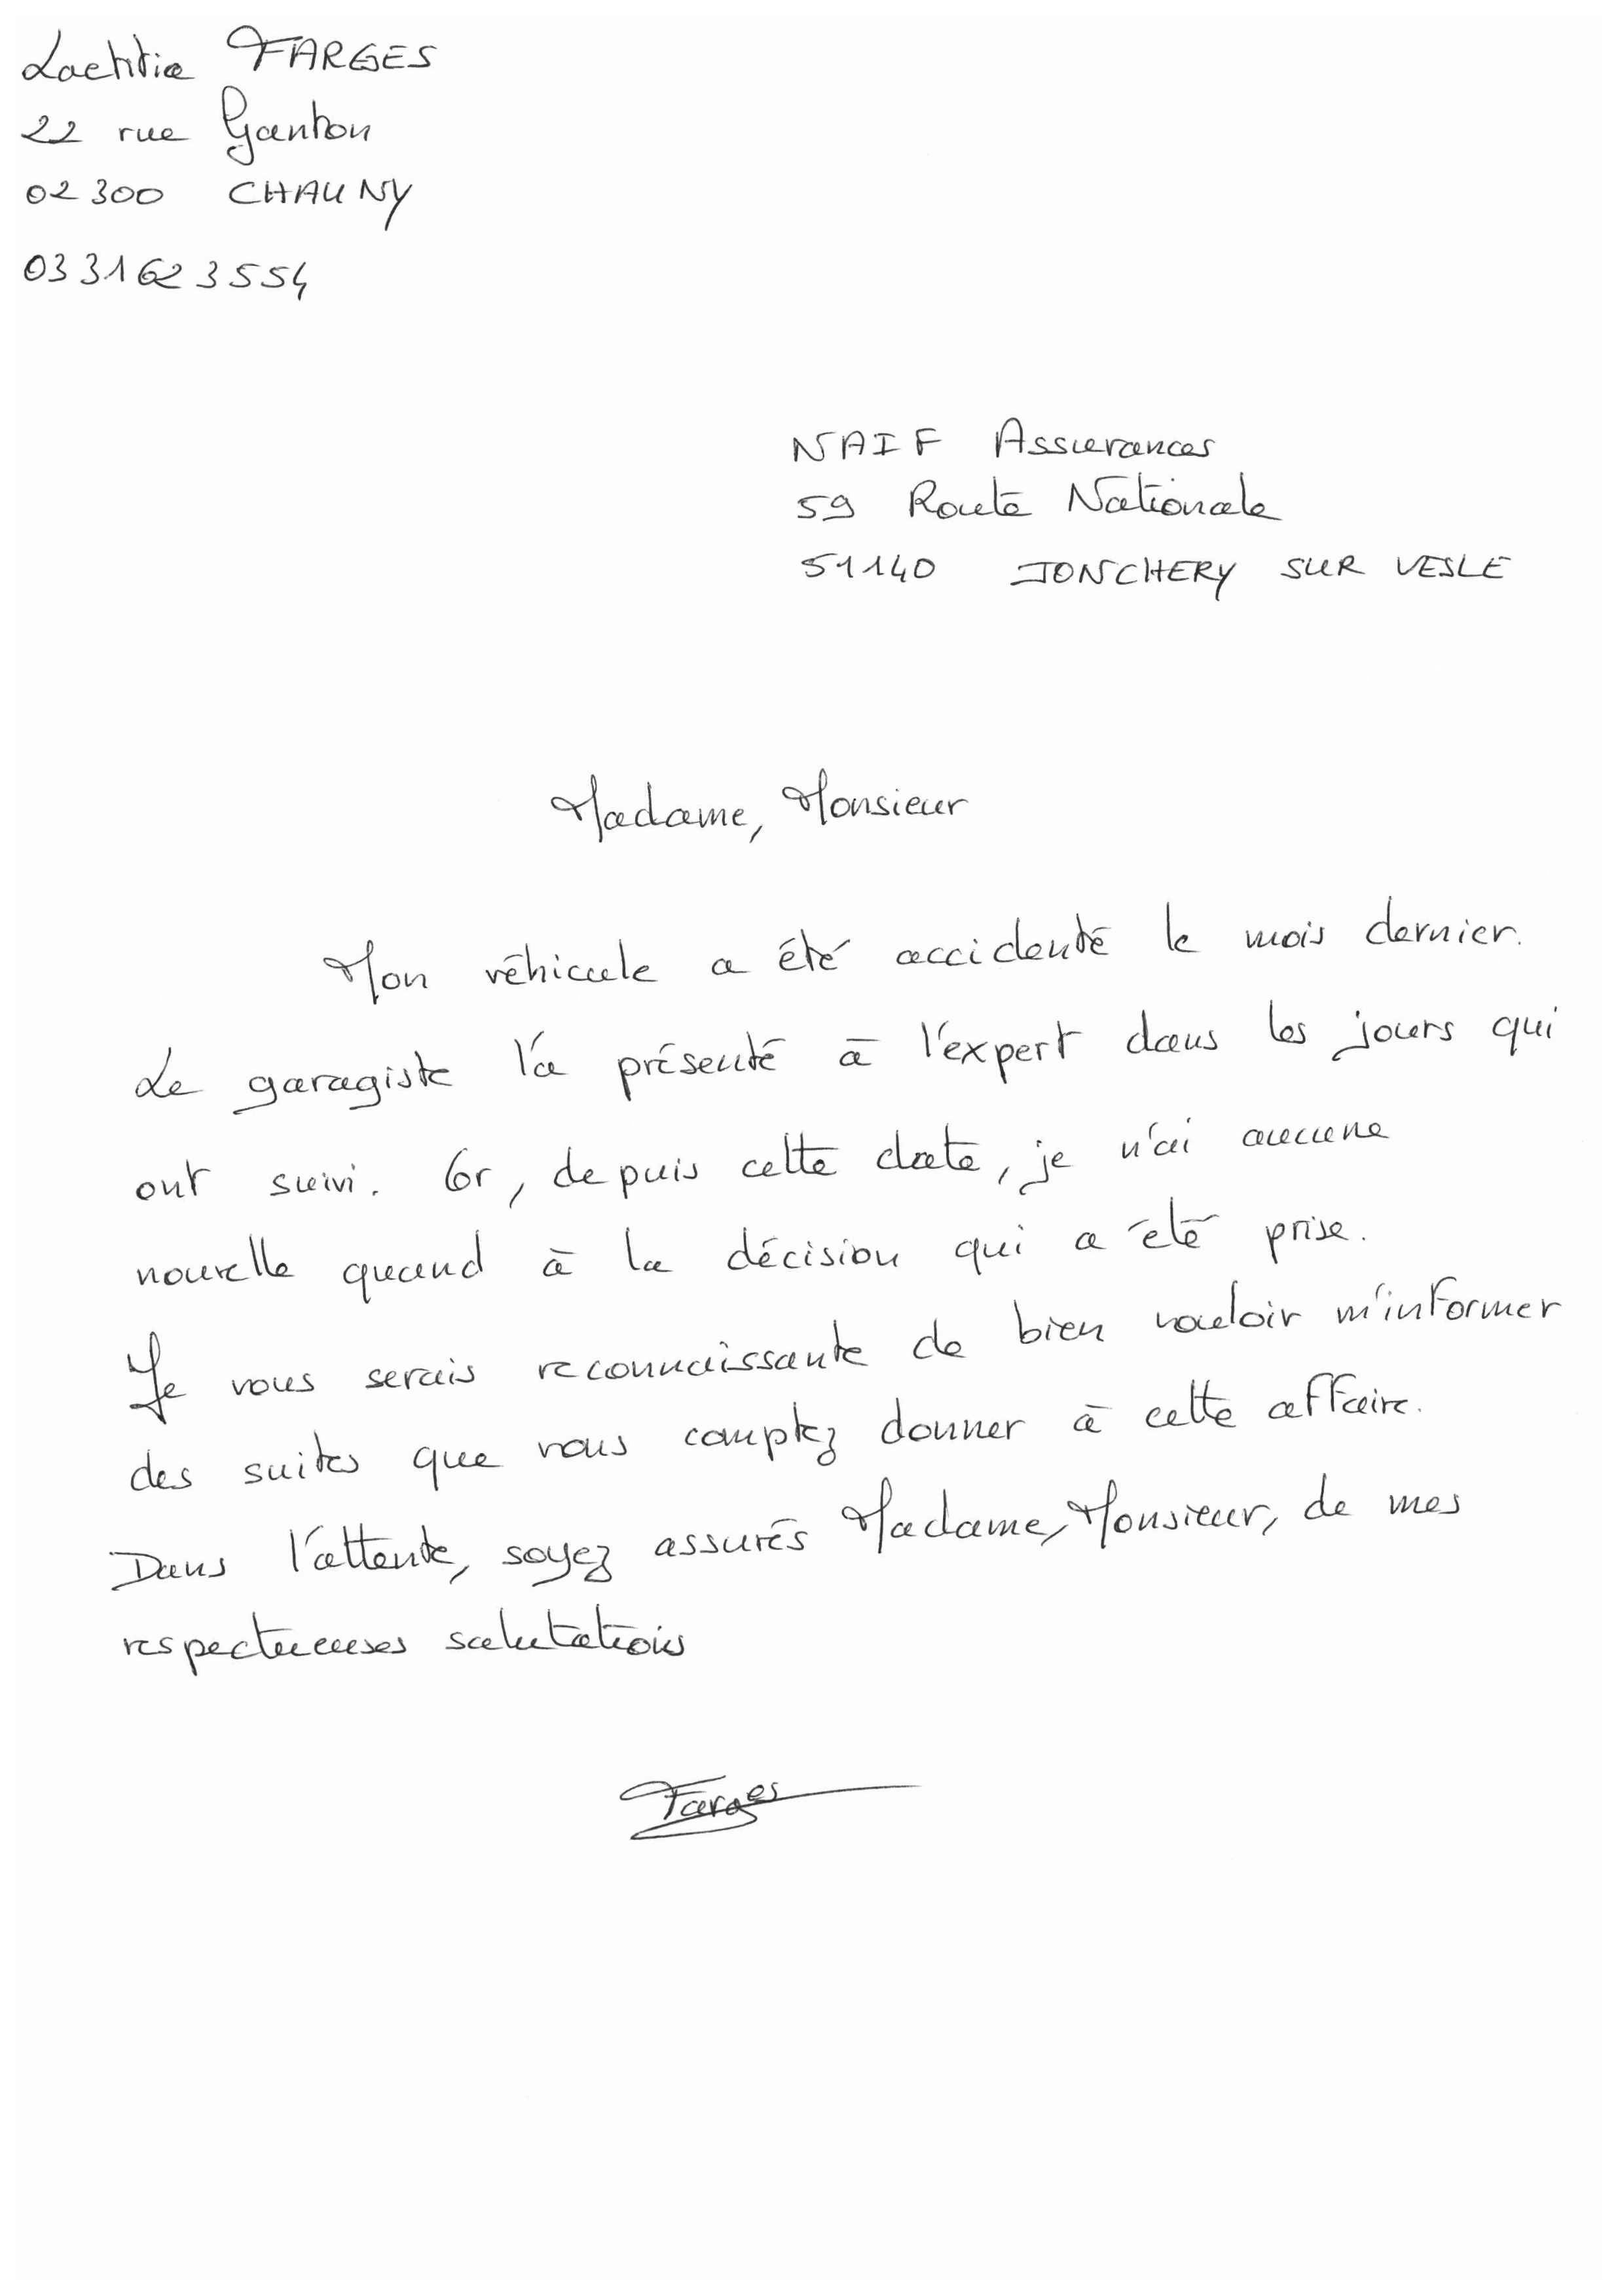 Laetitia FARGES
22 rue Ganton
02300 CHAUNY
0331623554
NAIF Assurances
59 Route Nationale
51140 JONCHERY SUR VESLE
Madame, Monsieur
Mon véhicule a été accidenté le mois dernier.
Le garagiste l'a présenté à l'expert dans les jours qui
ont suivi. Or, depuis cette date, je n'ai aucune
nouvelle quand à la décision qui a été prise.
Je vous serais reconnaissante de bien vouloir m'informer
des suites que vous comptez donner à cette affaire.
Dans l'attente, soyez assurés Madame, Monsieur, de mes
respectueuses salutations
Farges